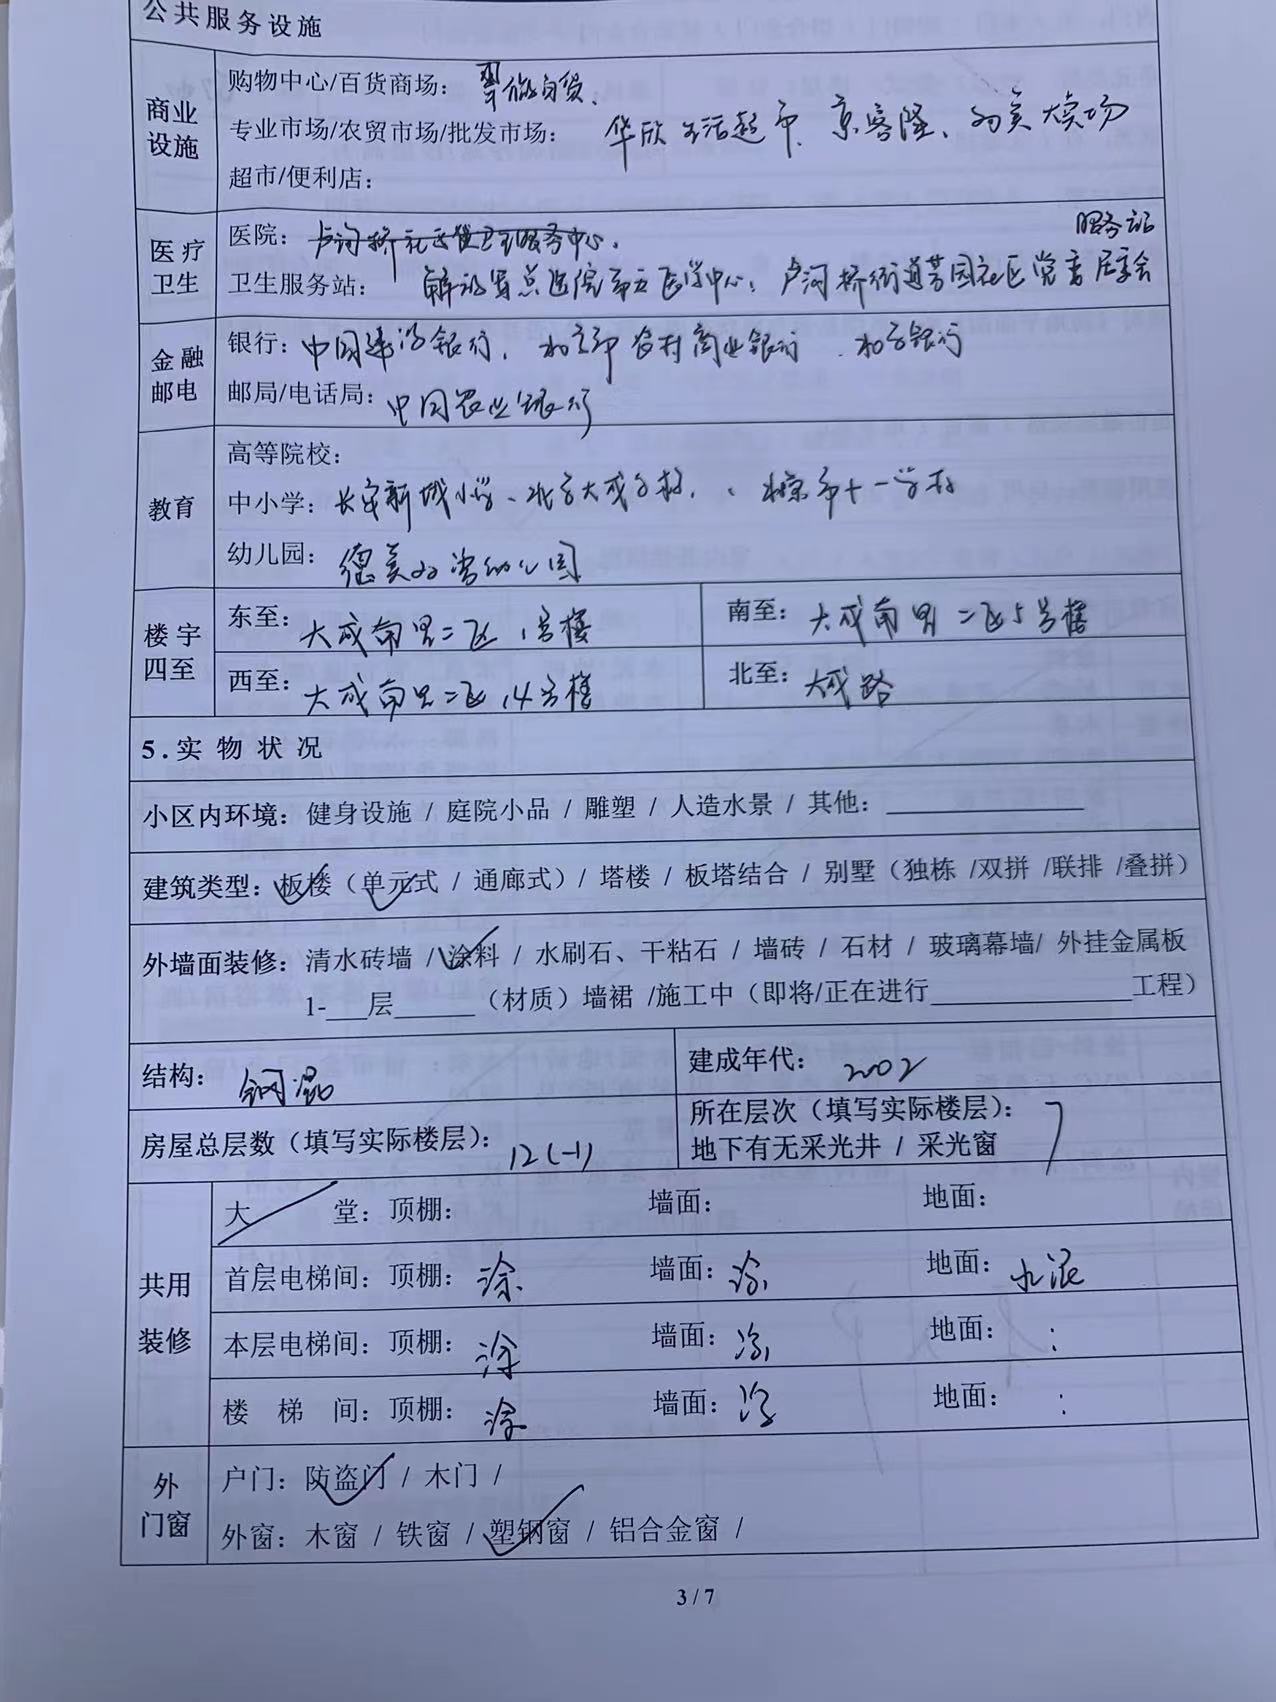 公共服务设施
商业设施
购物中心/百货商场：翠微百货、
专业市场/农贸市场/批发市场：华欣生活超市、京客隆、物美大卖场
超市/便利店：
医疗卫生
医院：卢沟桥社区卫生服务中心、
服务站
卫生服务站：解放军总医院第五医学中心、卢沟桥街道芳园社区党委居委会
金融邮电
银行：中国建设银行、北京市农村商业银行、北京银行
邮局/电话局：中国农业银行
教育
高等院校：
中小学：长安新城小学、北京大成学校、、北京市十一学校
幼儿园：德美幼儿园
楼宇四至
东至：大成南里二区1号楼
南至：大成南里二区5号楼
西至：大成南里二区14号楼
北至：大成路
5.实物状况
小区内环境：健身设施 / 庭院小品 / 雕塑 / 人造水景 / 其他：
建筑类型：板楼（单元式 / 通廊式）/ 塔楼 / 板塔结合 / 别墅（独栋 /双拼 /联排 /叠拼）
外墙面装修：清水砖墙 / 涂料 / 水刷石、干粘石 / 墙砖 / 石材 / 玻璃幕墙/ 外挂金属板
1-___层______（材质）墙裙 /施工中（即将/正在进行_______________工程）
结构：钢混
建成年代：2002
房屋总层数（填写实际楼层）：12(-1)
所在层次（填写实际楼层）：7
地下有无采光井 / 采光窗
共用装修
大堂：顶棚： 墙面： 地面：
首层电梯间：顶棚：涂 墙面：涂 地面：水泥
本层电梯间：顶棚：涂 墙面：涂 地面： :
楼梯间：顶棚：涂 墙面：涂 地面： :
外门窗
户门：防盗门 / 木门 /
外窗：木窗 / 铁窗 / 塑钢窗 / 铝合金窗 /
3 / 7